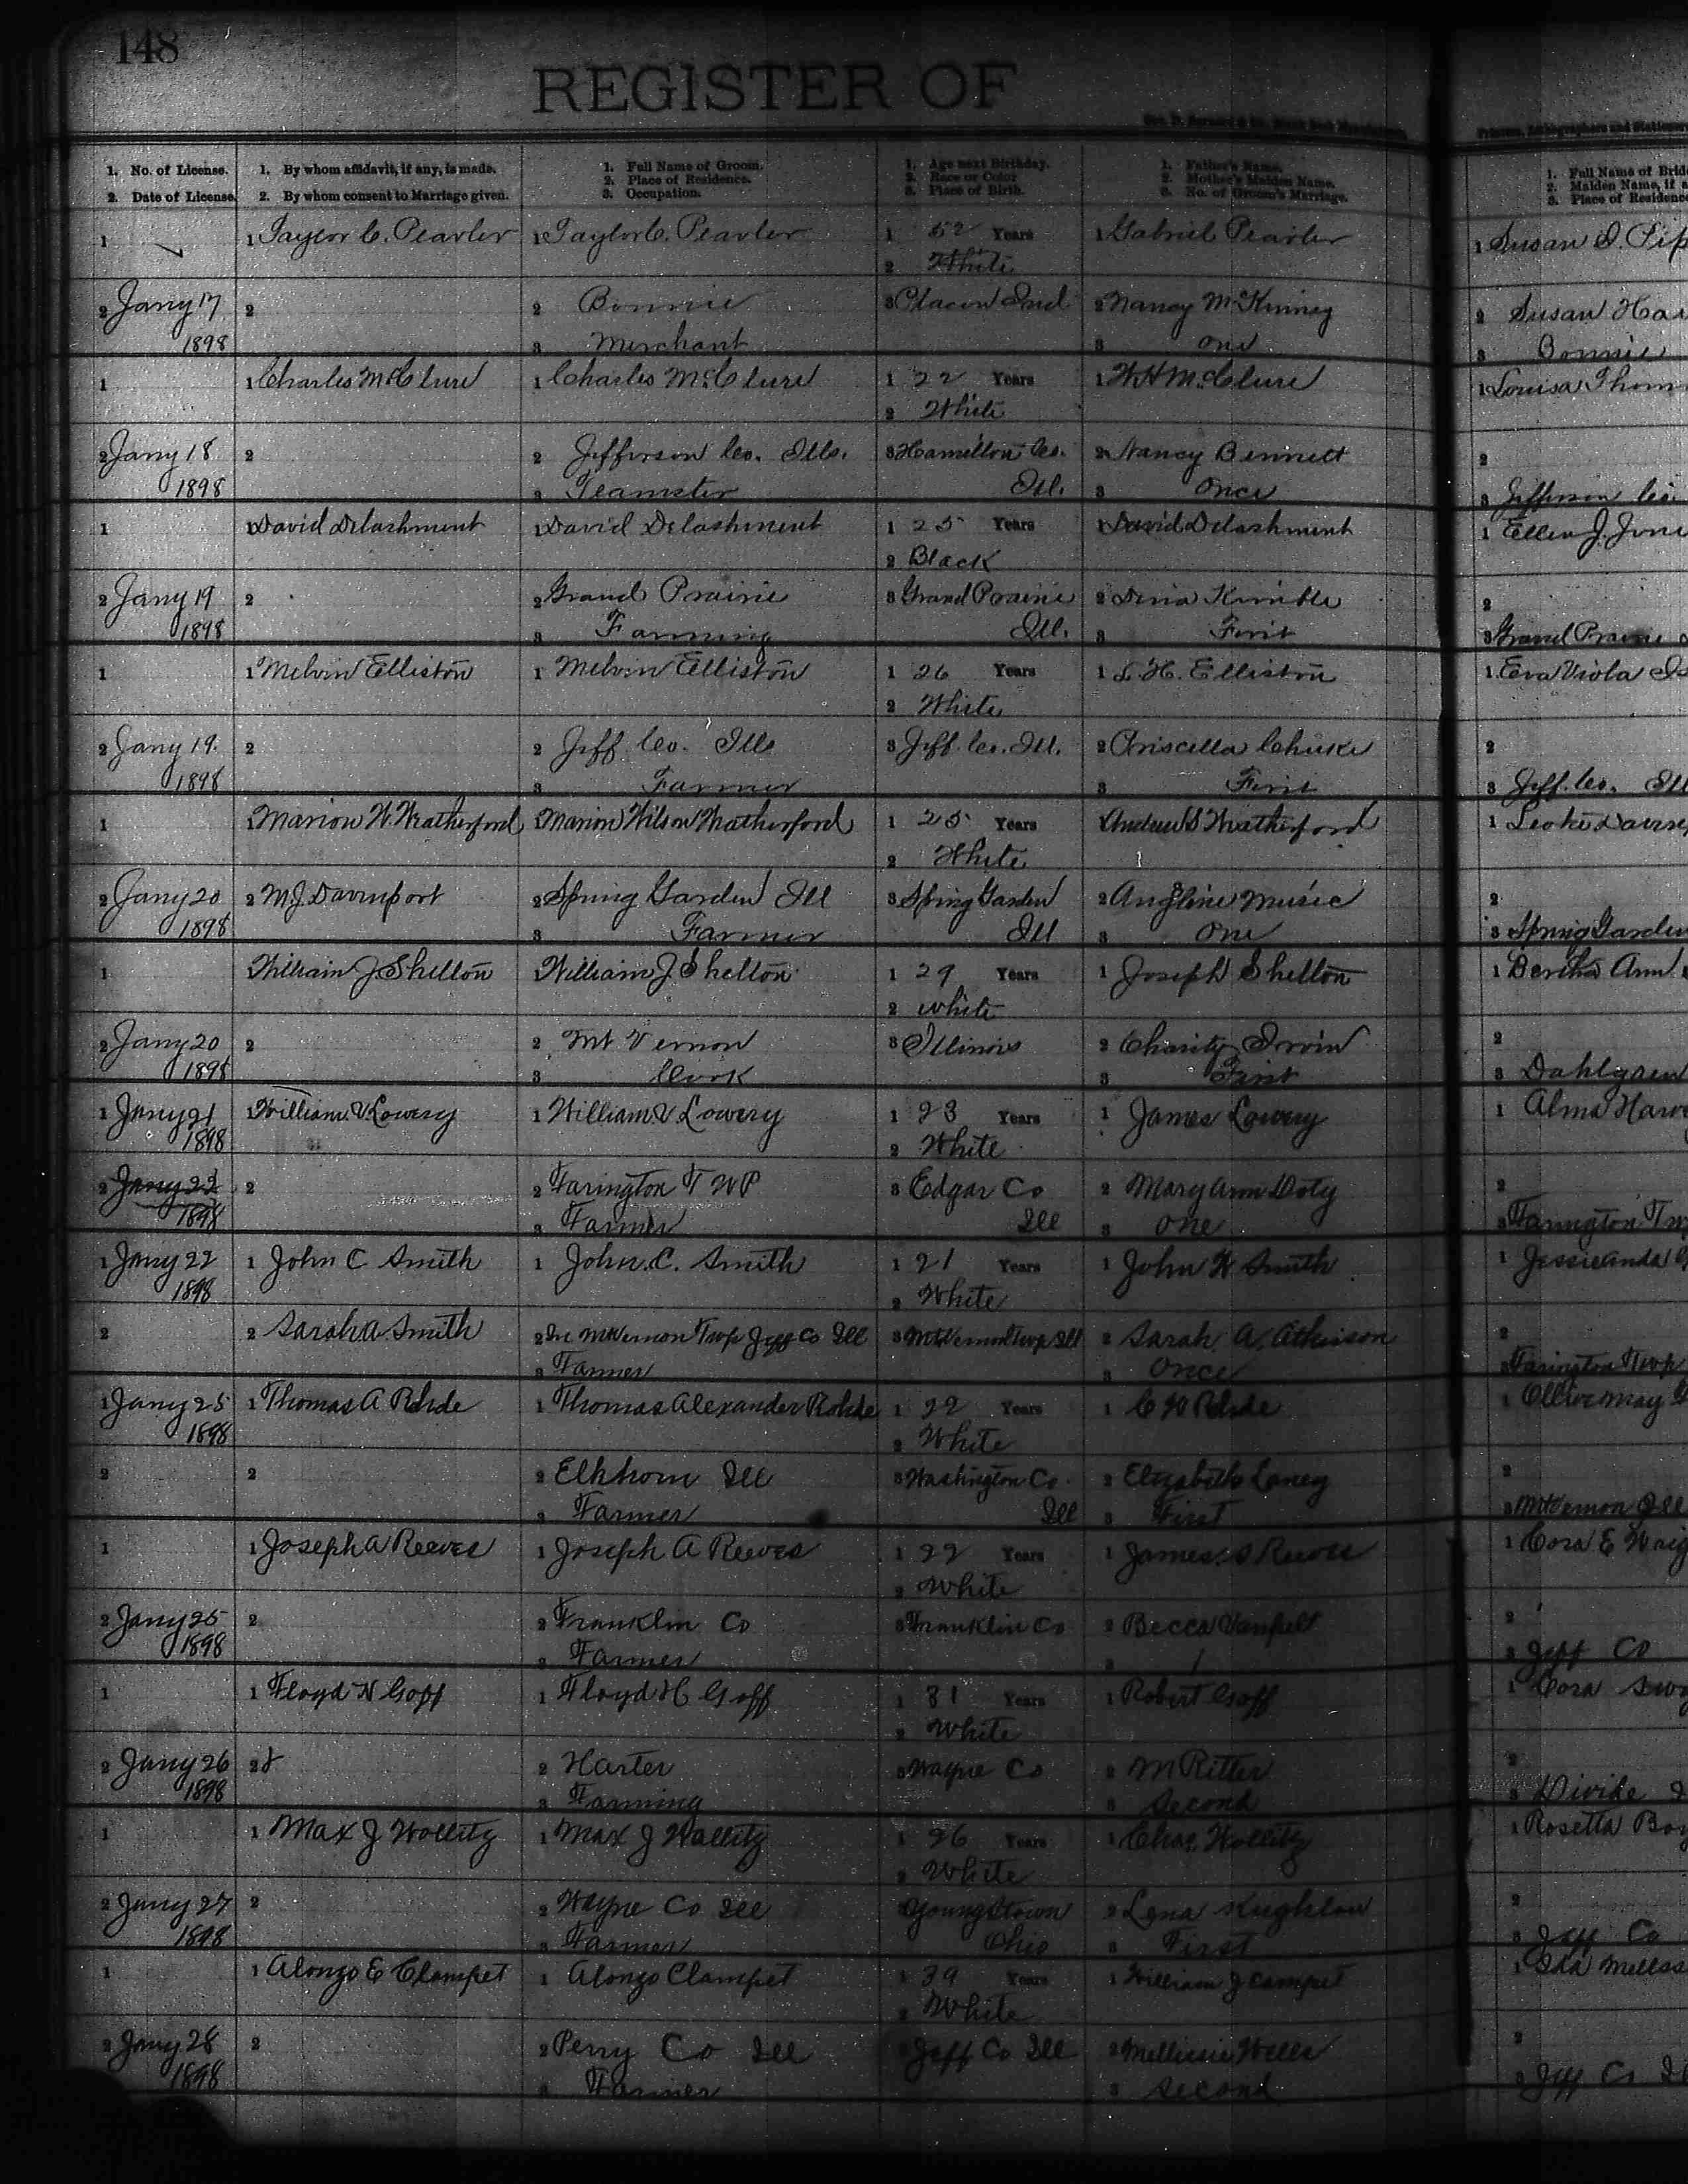 148
REGISTER OF
1. No. of License.
2. Date of License.
1. By whom affidavit, if any, is made.
2. By whom consent to Marriage given.
1. Full Name of Groom.
2. Place of Residence.
3. Occupation.
1. Age next Birthday.
2. Race or Color
3. Place of Birth.
1. Father's Name.
2. Mother's Maiden Name.
3. No. of Groom's Marriage.
1. Full Name of Brid
2. Maiden Name, if a
3. Place of Residence
1 1 Taylor C. Peavler 1 Taylor C. Peavler 1 52 Years 1 Gabriel Peavler 1 Susan I. Pip
2 White
2 Jany 17 2 2 Bonnie 3 Ind 2 Nancy McKinney 2 Susan Har
1898 3 Merchant 3 one 3 Bonnie
1 1 Charles McClure 1 Charles McClure 1 22 Years 1 W H McClure 1 Louisa Thom
2 White
2 Jany 18 2 2 Jefferson Co. Ills. 3 Hamilton Co. 2 Nancy Bennett 2
1898 3 Teamster Ill. 3 Once 3 Jefferson Co.
1 1 David Delashment 1 David Delashment 1 25 Years 1 David Delashment 1 Ellen J. Jone
2 Black
2 Jany 19 2 2 Grand Prairie 3 Grand Prairie 2 Kimble 2
1898 3 Farming Ill. 3 First 3 Grand Prairie
1 1 Melvin Elliston 1 Melvin Elliston 1 26 Years 1 L. H. Elliston 1 Eva Viola
2 White
2 Jany 19. 2 2 Jeff Co. Ills 3 Jeff. Co. Ill. 2 Priscilla 2
1898 3 Farmer 3 First 3 Jeff. Co. Ill
1 1 Marion W. Weatherford 1 Marion Wilson Weatherford 1 25 Years 1 Andrew S Weatherford 1
2 White
2 Jany 20 2 M. J. Davenport 2 Spring Garden Ill 3 Spring Garden 2 Angeline Music 2
1898 3 Farmer Ill 3 One 3 Spring Garden
1 William J Shelton William J. Shelton 1 29 Years 1 Joseph Shelton 1 Bertha Ann
2 White
2 Jany 20 2 2 Mt Vernon 3 Illinois 2 Charity Irvin 2
1898 3 Cook 3 First 3 Dahlgren
1 Jany 21 1 William V. Lowery 1 William V. Lowery 1 23 Years 1 James Lowery 1 Alma Harv
1898 2 White
2 Jany 22 2 2 Farington T W P 3 Edgar Co 2 Mary Ann Doty 2
1898 3 Farmer Ill 3 One 3 Farington Twp
1 Jany 22 1 John C Smith 1 John. C. Smith 1 21 Years 1 John W Smith 1 Jessie anda
1898 2 White
2 2 Sarah A Smith 2 In Mt Vernon Twp Jeff Co Ill 3 Mt Vernon Twp Ill 2 Sarah A. Atkisson 2
3 Farmer 3 Once 3 Farington Twp
1 Jany 25 1 Thomas A Rohde 1 Thomas Alexander Rohde 1 22 Years 1 C W Rohde 1 Ollive May
1898 2 White
2 2 2 Elkhorn Ill 3 Washington Co. 2 Elizabeth Laney 2
3 Farmer Ill 3 First 3 Mt Vernon Ill
1 1 Joseph A Reeves 1 Joseph A Reeves 1 22 Years 1 James. S Reeves 1 Cora E Wrig
2 White
2 Jany 25 2 2 Franklin Co 3 Franklin Co 2 Becca Vanpelt 2
1898 3 Farmer 3 1 3 Jeff Co
1 1 Floyd H Goff 1 Floyd H Goff 1 31 Years 1 Robert Goff 1 Cora
2 White
2 Jany 26 2 2 Harter 3 Wayne Co 2 M Ritter 2
1898 3 Farming 3 Second 3 Divide
1 1 Max J Wollitz 1 Max J Wallitz 1 26 Years 1 Chas. Wollitz 1 Rosetta Bo
2 White
2 Jany 27 2 2 Wayne Co Ill Youngstown 2 Lena 2
1898 3 Farmer Ohio 3 First 3 Jeff Co
1 1 Alonzo E Clampet 1 Alonzo Clampet 1 39 Years 1 William J Campet 1 Ida Meliss
2 White
2 Jany 28 2 2 Perry Co Ill 3 Jeff Co Ill 2 Mellissie Wells 2
1898 3 Farmer 3 Second 3 Jeff Co Il